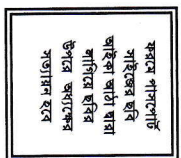 ফরমে পাসপোর্ট
সাইজের ছবি
আইকা আঠা দ্বারা
লাগিয়ে ছবির
উপরে অধ্যক্ষর
সত্যায়ন হবে